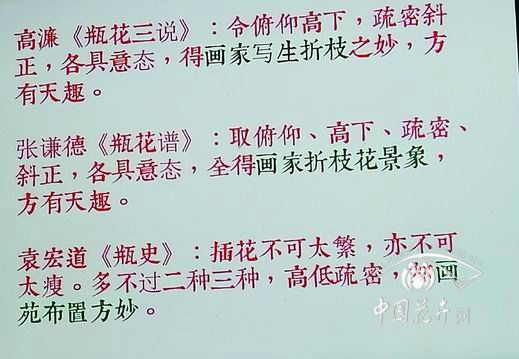 高濂《瓶花三说》：令俯仰高下，疏密斜
正，各具意态，得画家写生折枝之妙，方
有天趣。
张谦德《瓶花谱》：取俯仰、高下、疏密、
斜正，各具意态，全得画家折枝花景象，
方有天趣。
袁宏道《瓶史》：插花不可太繁，亦不可
太瘦。多不过二种三种，高低疏密，如画
苑布置方妙。
中国花卉网